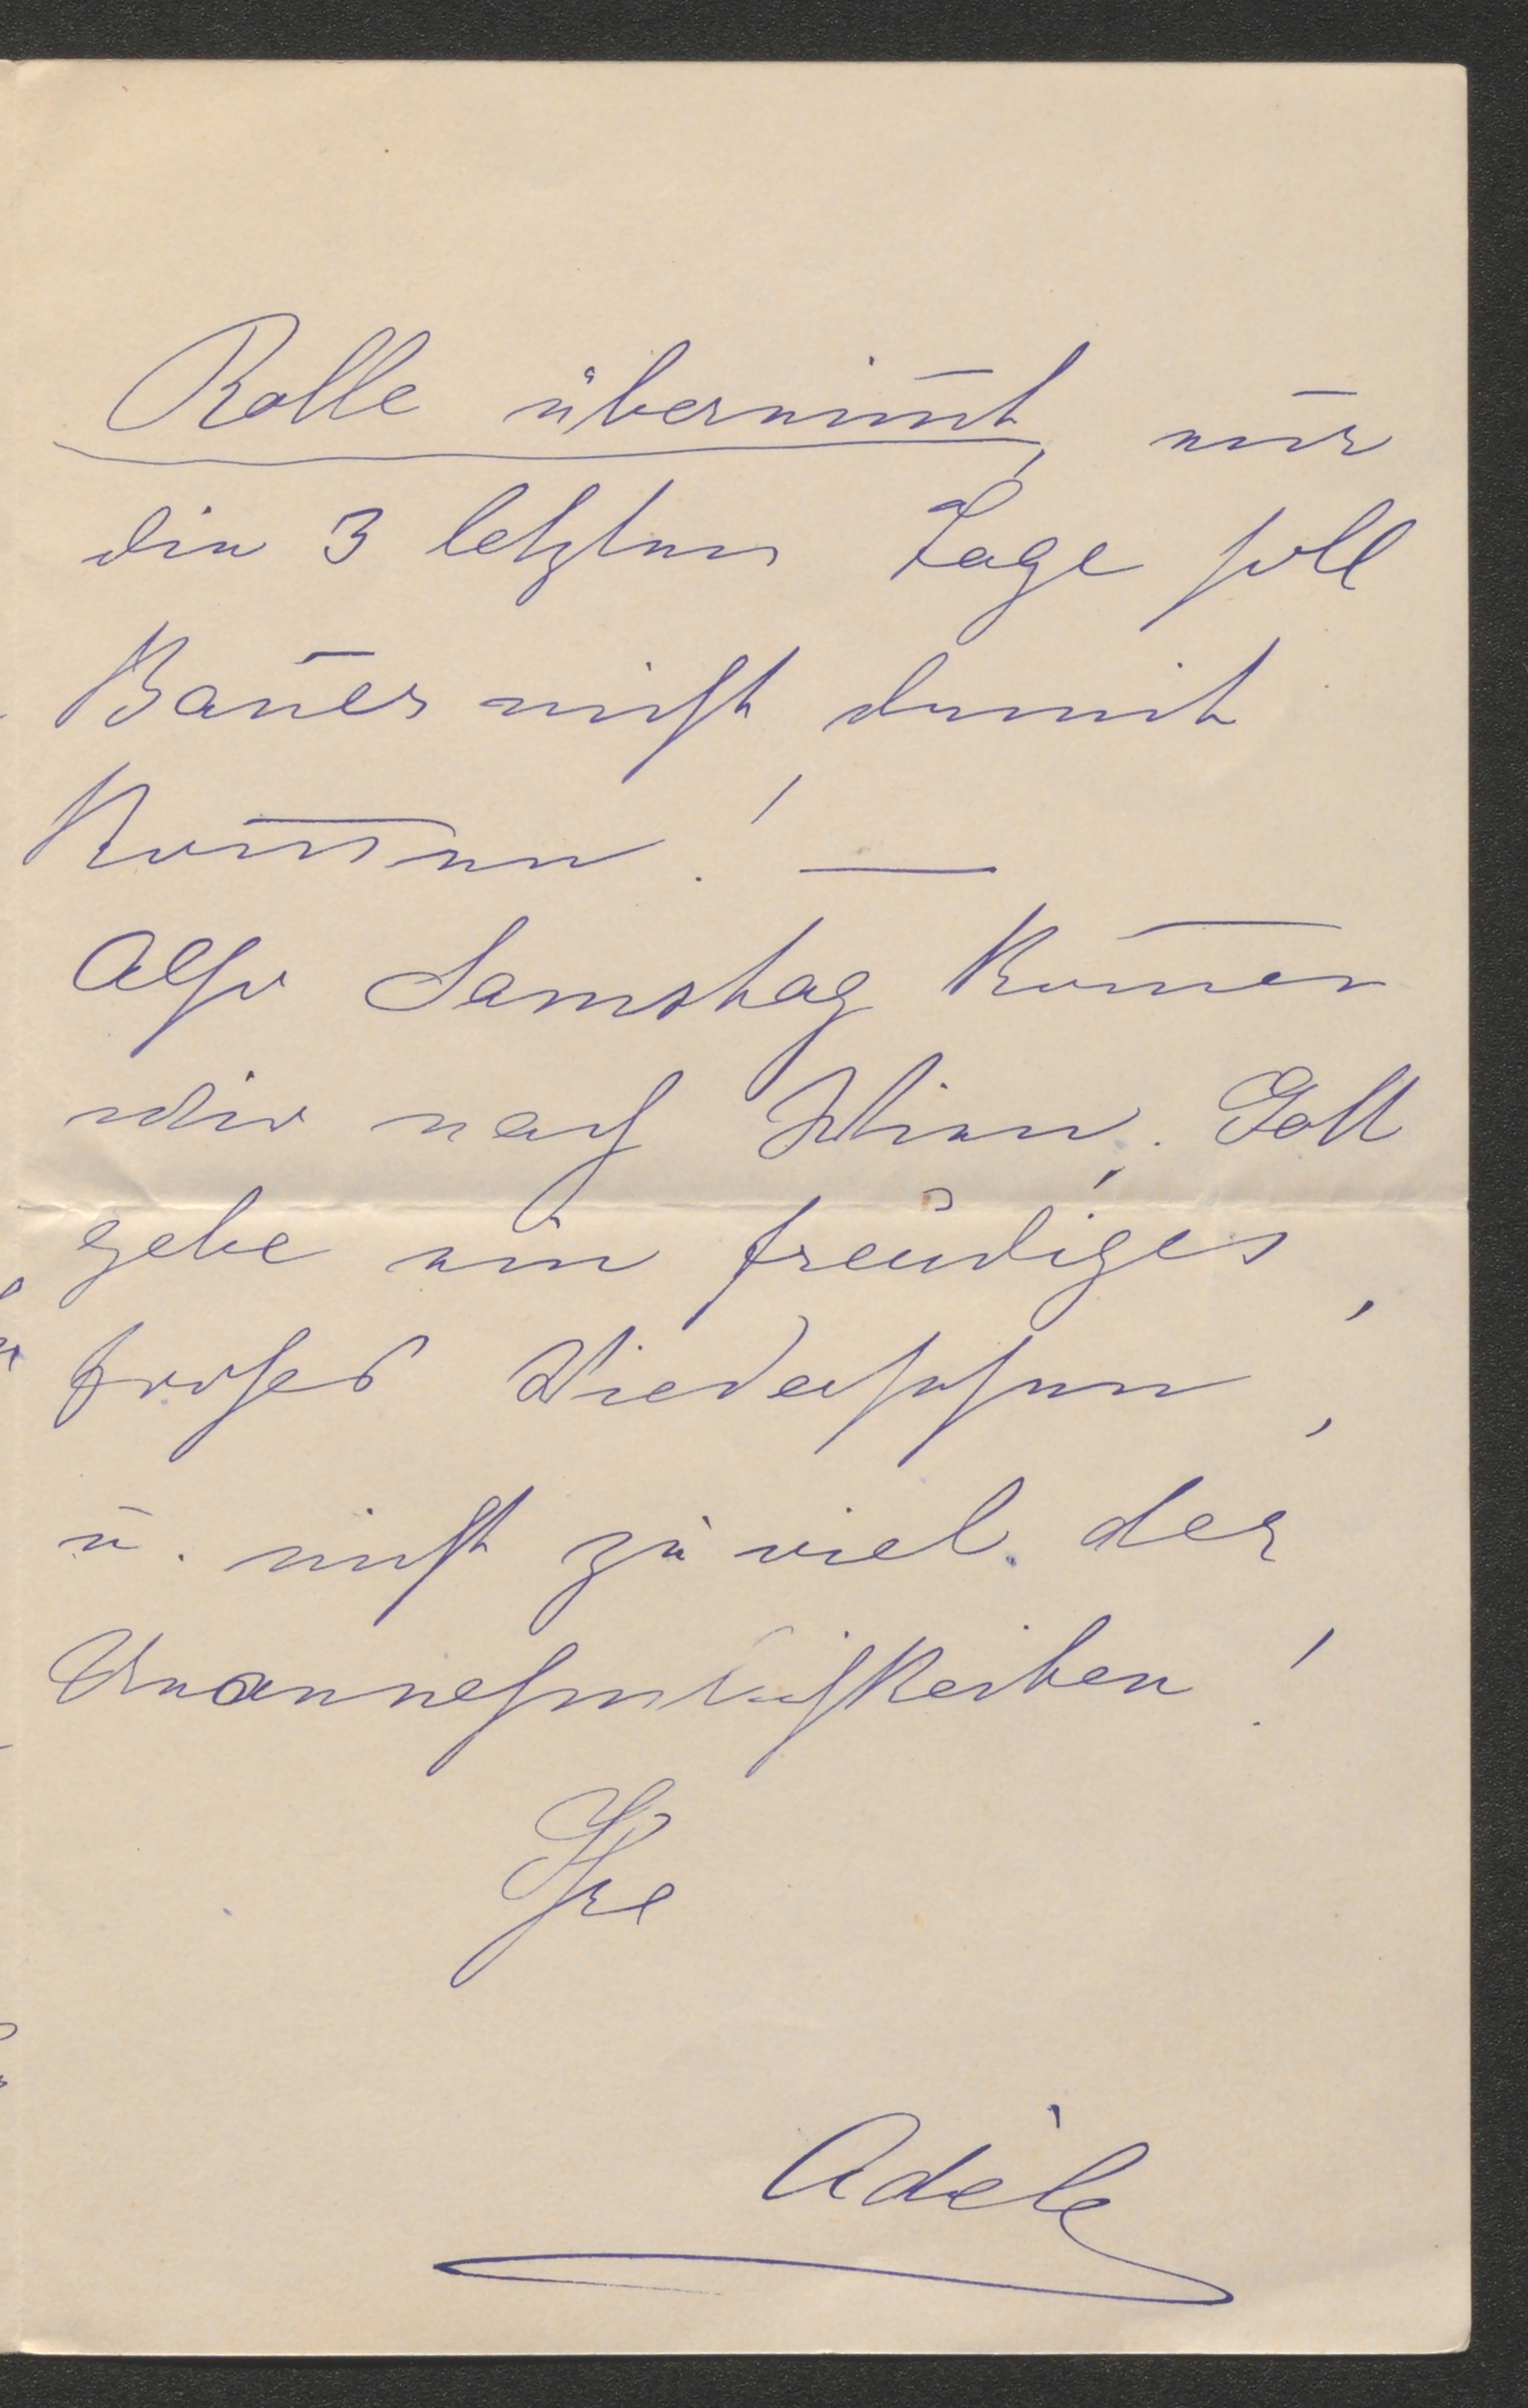 Rolle übernim̅t, nur
die 3 letzten Tage soll
Bauer nicht damit
kom̅men! —
Also Samstag kom̅en
wir nach Wien, Gott
gebe ein freudiges,
frohes Wiedersehen,
u. nicht zu viel der
Unannehmlichkeiten!
Ihre
Adèle